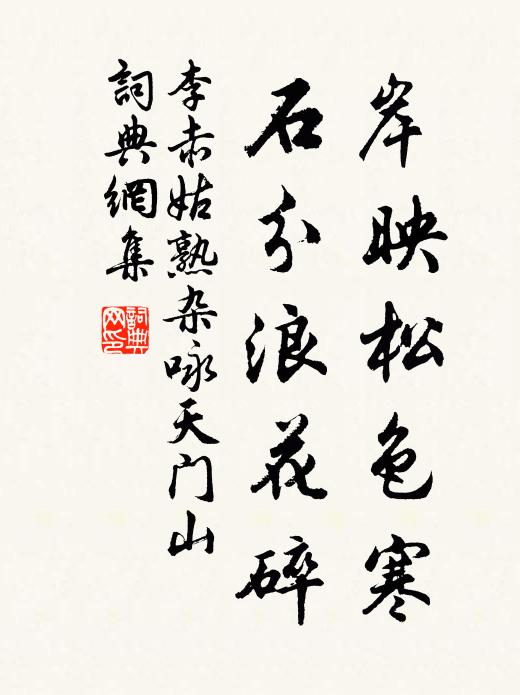 岸映松色寒
石分浪花碎
李赤姑熟杂咏天门山
詞典網集
詞典
网印